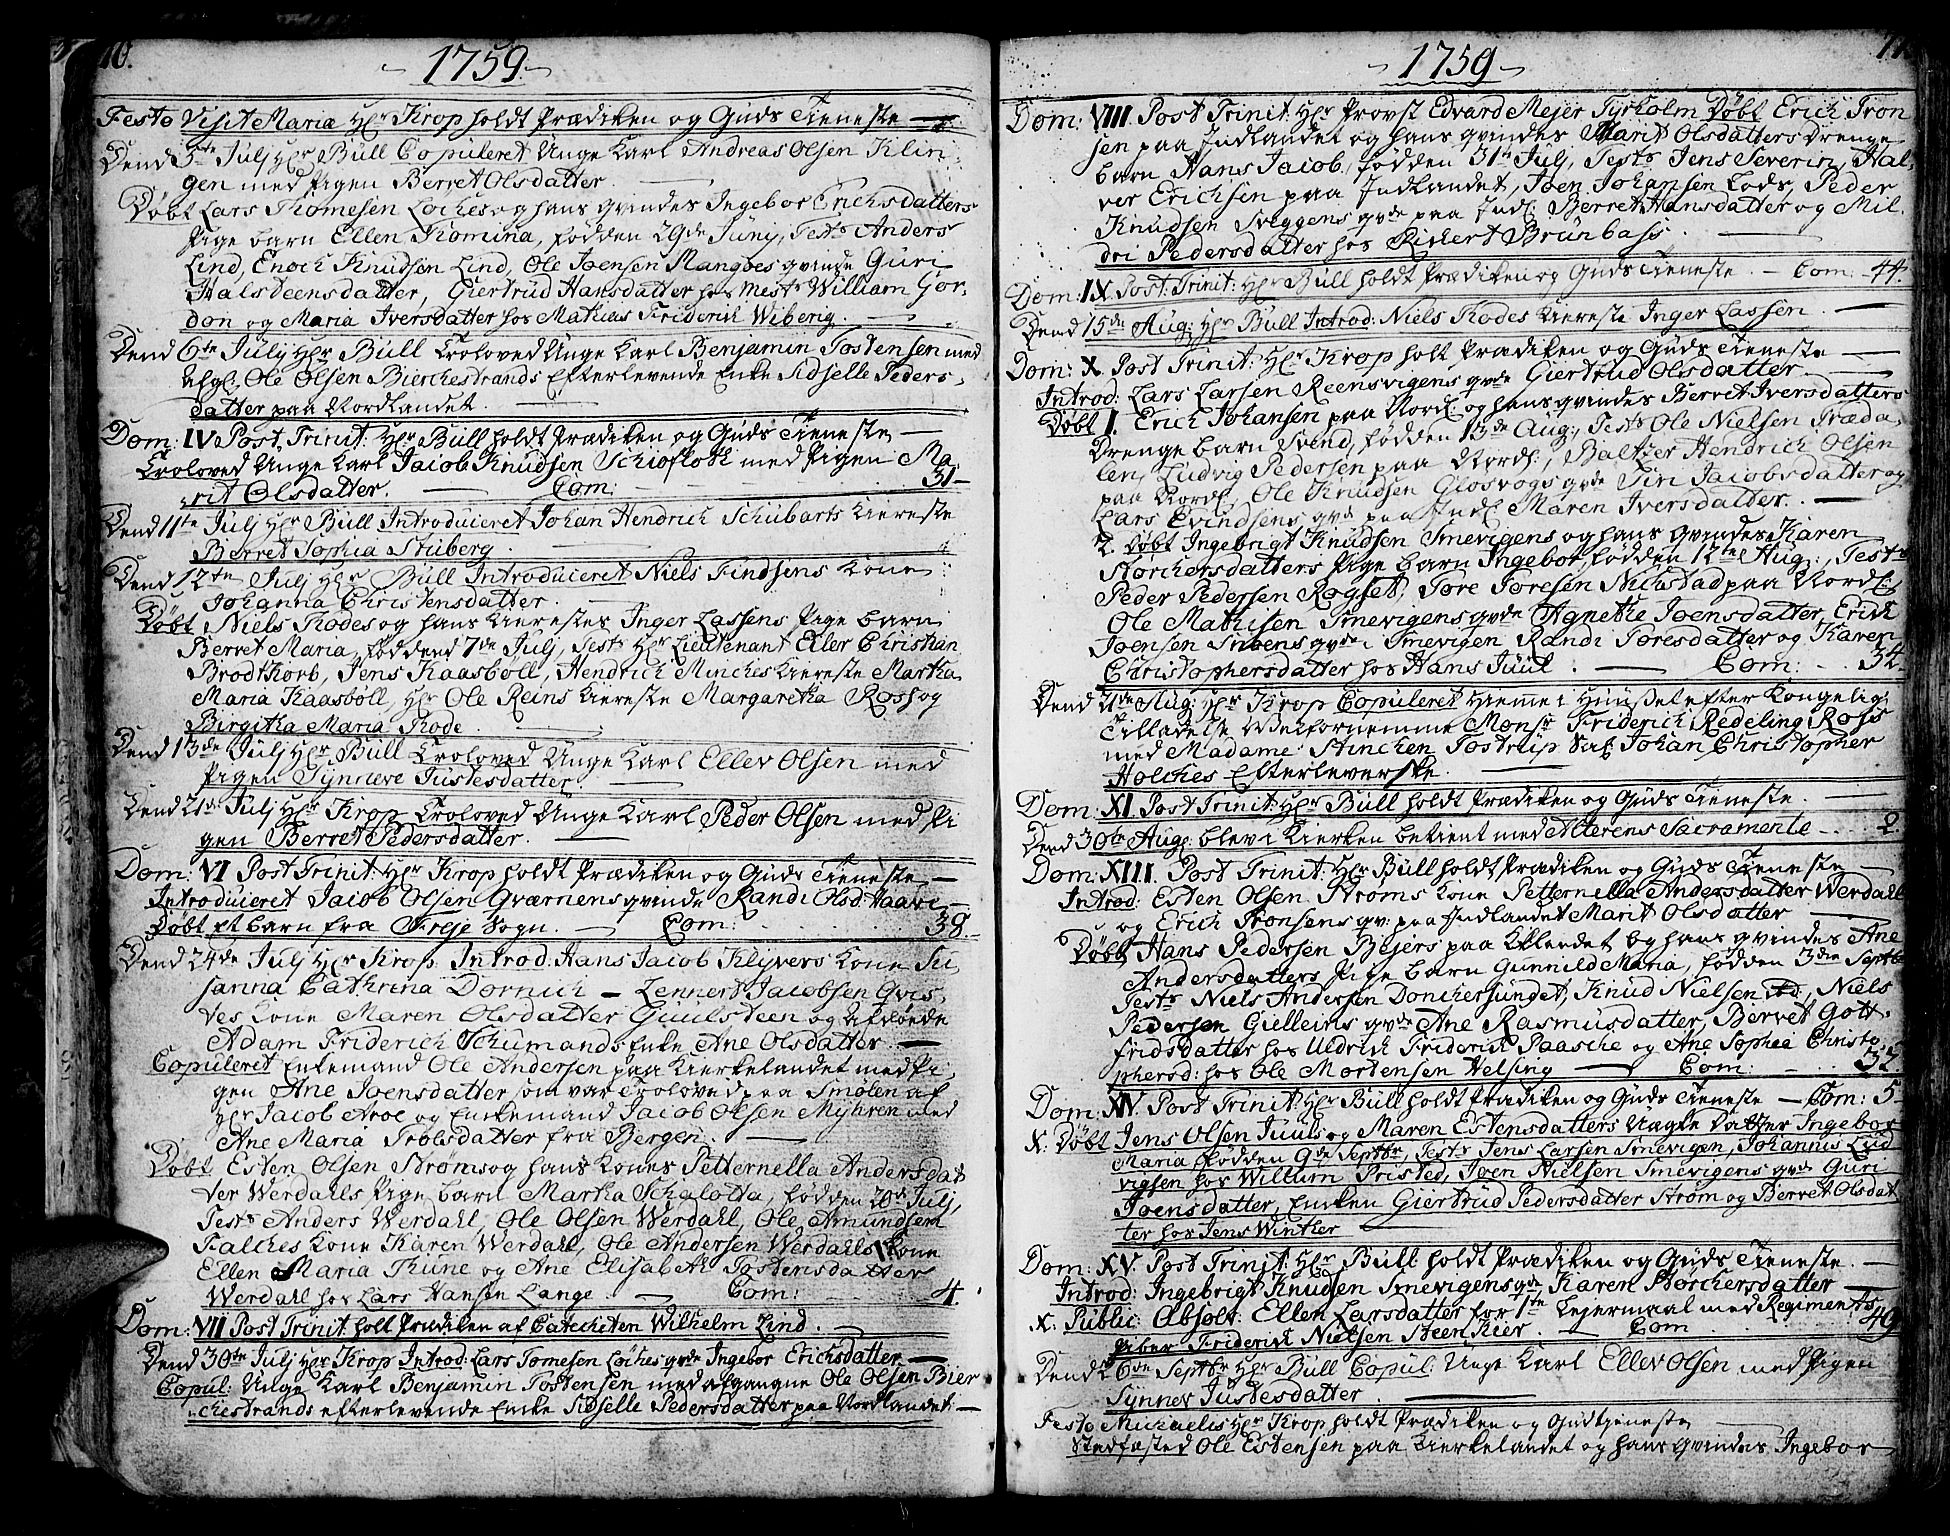 10.
1759.
Festo Visit Mariæ Hr Krop holdt Prædiken og Guds Tieneste
Dend 5te Julj Hr Bull Copuleret Unge Karl Andreas Olsen Klin¬
gen med Pigen Berret Olsdatter.
Døbt Lars Thomesen Loches og hans Qvindes Ingebor Erichsdatters
Pige barn Ellen Romina, fødden 29de Junj, Tests Anders
Lind, Enoch Knudsen Lind, Ole Joensen Mangøes qvinde Guri
Halsteensdatter, Giertrud Hansdatter hos Mestr William Gor¬
don og Maria Iversdatter hos Mathias Friderich Wiberg.
Dend 6te Julj Hr Bull Troloved Unge Karl Benjamin Tostensen med
Afgl: Ole Olsen Bierchestrands Efterlevende Enke Sidselle Peders¬
datter paa Nordlandet.
Dom: IV Post Trinit: Hr Bull holdt Prædiken og Guds Tieneste
Troloved Unge Karl Jacob Knudsen Schiøfloth med Pigen Ma¬
rit Olsdatter. Com: 31-
Dend 11te Julj Hr Bull Introduiceret Johan Hendrich Schubarts Kiereste
Berret Sophia Stuberg.
Dend 12te Julj Hr Bull Introduiceret Niels Findsens Kone
Johanna Christensdatter.
Døbt Niels Rodes og hans Kierestes Inger Lassens Pige barn
Berret Maria, fødden d 7de Julj, Tests Hr Lieutenant Eller Christian
Brodtkorb, Jens Kaasbøll, Hendrich Minches Kiereste Martha
Maria Kaasbøll, Hr Ole Reins Kiereste Margaretha Ross og
Birgitha Maria Rode
Dend 13de Julj Hr Bull Troloved Unge Karl Ellev Olsen med
Pigen Synneve Justesdatter.
Dend 21de Julj Hr Krop Troloved Unge Karl Peder Olsen med Pi
gen Berret Pedersdatter.
Dom: VI Post Trinit: Hr Krop holdt Prædiken og Guds Tieneste
Introduiceret Jacob Olsen Qværnens qvinde Randi Olsd: Haave
Døbt et barn fra Freje Sogn. Com: 38.
Dend 24de Julj Hr Krop Introd: Hans Jacob Klyvers Kone Su
sanna Cathrina Dornich - Lennert Jacobsen Qvis
tes Kone Maren Olsdatter Guulsteen og Afdøede
Adam Friderich Schumands Enke Ane Olsdatter.
Copuleret Enkemand Ole Andersen paa Kierkelandet med Pi
gen Ane Joensdatter som var Troloved paa Smølen af
Hr Jacob Aroe og Enkemand Jacob Olsen Myhren med
Ane Maria Trolsdatter fra Bergen.
Døbt Esten Olsen Strøms og hans Kones Petternella Andersdat
ter Werdahls Pige barn Martha Schalotta, fødden 20de Julj,
Tests Anders Werdahl, Ole Olsen Werdahl, Ole Amundsen
Falches Kone Karen Werdahl, Ole Andersen Werdahls Kone
Ellen Maria Thune og Ane Elisabeth Tostensdatter
Werdahl hos Lars Hansen Lange. Com: 4.
Dom: VII Post Trinit: holt Prædiken af Catechiten Wilhelm Lind.
Dend 30te Julj Hr Krop Introd: Lars Tomesen Loches qvde Ingebor Erichsdatter
Copul: Unge Karl Benjamin Tostensen med afgangne Ole Olsen Bier
chestrands efterlevende Enke Sidselle Pedersdatter paa Nordlandet.
11.
1759
Dom: VIII. Post Trinit: Hr Provst Edvard Mejer Tyrholm Døbt Erich Tron
sen paa Indlandet og hans qvindes Marit Olsdatters Drenge
barn Hans Jacob, fødden 31te Julj, Tests Jens Severin, Hal¬
ver Erichsen paa Indlandet, Joen Johansen Lods, Peder
Knudsen Sveggens qvde paa Indl: Berret Hansdatter og Mil
dri Pedersdatter hos Rickert Brunbass.
Dom: IX. Post: Trinit: Hr Bull holdt Prædiken og Guds Tieneste. - Com: 44.
Dend 15de Aug: Hr Bull Introd: Niels Rodes Kiereste Inger Lassen.
Dom: X. Post Trinit: Hr Krop holt Prædiken og Guds Tieneste
Introd: Lars Larsen Reensvigens qvde Giertrud Olsdatter.
Døbt 1. Erich Johansen paa Nord: og hans qvindes Berret Iversdatters
Drenge barn Svend, fødden 13de Aug:, Tests Ole Nielsen Fræda¬
len, Ludvig Pedersen paa Nordl:, Baltzer Hendrich Olsen
paa Nordl:, Ole Knudsen Glosvogs qvde Siri Jacobsdatter og
Lars Evindsens qvd paa Indl: Maren Iversdatter.
2. Døbt Ingebrigt Knudsen Smevigens og hans Qvindes Karen
Storchersdatters Pige barn Ingebor, fødden 12te Aug:, Tests
Peder Pedersen Rogset, Tore Toresen Nichstad paa Nordl:
Ole Mathisen Smevigens qvde Agnethe Joensdatter, Erich
Joensen qvde i Smevigen Randi Toresdatter og Karen
Christophersdatter hos Hans Juul. Com: 34.
Dend 21de Aug: Hr Krop Copuleret Hiemme i Huuset efter Kongelig
Tilladelse Velfornemme Monsr Friderich Redeling Ross
med Madame Stinchen Tostrup Sal: Johan Christopher
Holches Efterleverske.
Dom: XI. Post Trinit: Hr Bull holdt Prædiken og Guds Tieneste.
Dend 30te Aug: blev i Kierken betient med Alterens Sacramente - 2.
Dom: XIII. Post Trinit: Hr Bull holdt Prædiken og Guds Tieneste
Introd: Esten Olsen Strøms Kone Petternella Andersdatter Werdahl
og Erich Tronsens qv: paa Indlandet Marit Olsdatter
Døbt Hans Pedersen Bejers paa Ellendet og hans qvindes Ane
Andersdatters Pige barn Gunnild Maria, fødden 3die Septbr
Tests Niels Andersen Donchersundet, Knud Nielsen, Niels
Pedersen Gielleins qvde Ane Rasmusdatter, Berret Gott¬
fridsdatter hos Uldrich Friderich Paasche og Ane Sophea Christo¬
phersd: hos Ole Mortensen Helsing Com: 32.
Dom: XIV. Post Trinit: Hr Bull holdt Prædiken og Guds Tieneste - Com: 5.
X. Døbt Jens Olsen Juuls og Maren Estensdatters Uægte Datter Ingebor
Maria fødden 9de Septbr, Tests Jens Larsen Smevigen, Johannis Lud
vigsen hos Willum Fristed, Joen Nielsen Smevigens qvde Guri
Joensdatter, Enken Giertrud Pedersdatter Strøm og Berret Olsdat
ter hos Jens Winther
Dom: XV. Post Trinit: Hr Bull holdt Prædiken og Guds Tieneste.
Introd: Ingebrigt Knudsen Smevigens qde Karen Storchersdatter
X. Public: Absolv: Ellen Larsdatter for 1te Lejermaal med Regiments
Piber Friderich Nielsen Steenkier. Com 49.
Dend 26de Septbr Hr Bull Copul: Unge Karl Ellev Olsen med Pigen
Synnev Justesdatter
Festo Michaelis Hr Krop holdt Prædiken og Gudstjeneste
Stedfæsted Ole Estensen paa Kierkelandet og hans Qvindes Ingebor